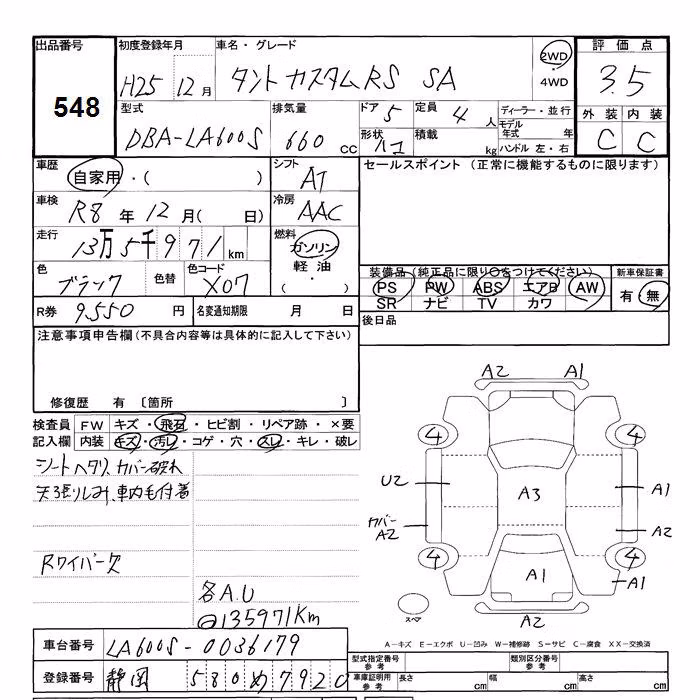 出品番号
548
初度登録年月
H25 12月
車名・グレード
タント カスタムRS SA
2WD
・
4WD
評価点
3.5
外装 内装
C C
型式
DBA-LA600S
排気量
660 cc
ドア 5
定員 4 人
形状
積載 kg
ディーラー・並行
モデル年式 年
ハンドル 左・右
車歴
自家用・( )
シフト
AT
車検
R8 年 12 月( 日)
冷房
AAC
走行
13万5千971km
燃料
ガソリン
軽油
( ・ )
色
ブラック
色替
色コード
X07
R券 9,550 円
名変通知期限 月 日
セールスポイント (正常に機能するものに限ります)
装備品(純正品に限り○をつけてください)
PS PW ABS エアB AW
SR ナビ TV カワ
新車保証書
有・無
後日品
注意事項申告欄(不具合内容等は具体的に記入して下さい)
修復歴 有 〔箇所 〕
検査員記入欄
FW キズ・飛石・ヒビ割・リペア跡・×要
内装 キズ・汚レ・コゲ・穴・スレ・キレ・破レ
シートヘタリ、カバー破れ
天張りしみ、車内毛付着
Rワイパー欠
各A.U
135971Km
A2 A1
4 4
U2
A3
A1
カバー
A2
A2
4 4
A1
A1
スペア
A2
A-キズ E-エクボ U-凹み W-補修跡 S-サビ C-腐食 XX-交換済
車台番号 LA600S-0036179
登録番号 静岡 580 め 7920
型式指定番号
参考
類別区分番号
参考
車庫証明用
参考
長さ cm
幅 cm
高さ cm